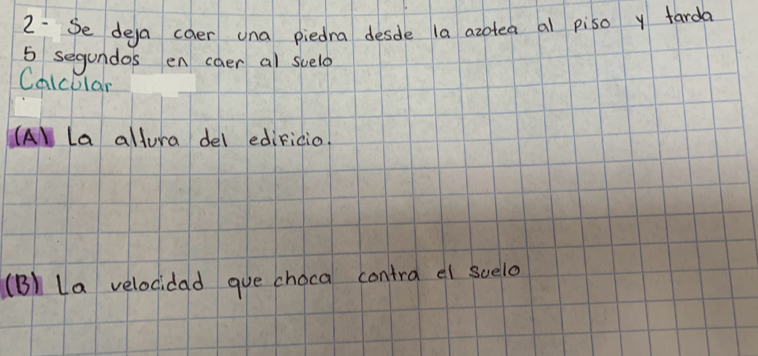 2- Se deja caer una piedra desde la azotea al piso y tarda
5 segundos en caer al suelo
Calcular
(A) La altura del edificio.
(B) La velocidad que choca contra el suelo